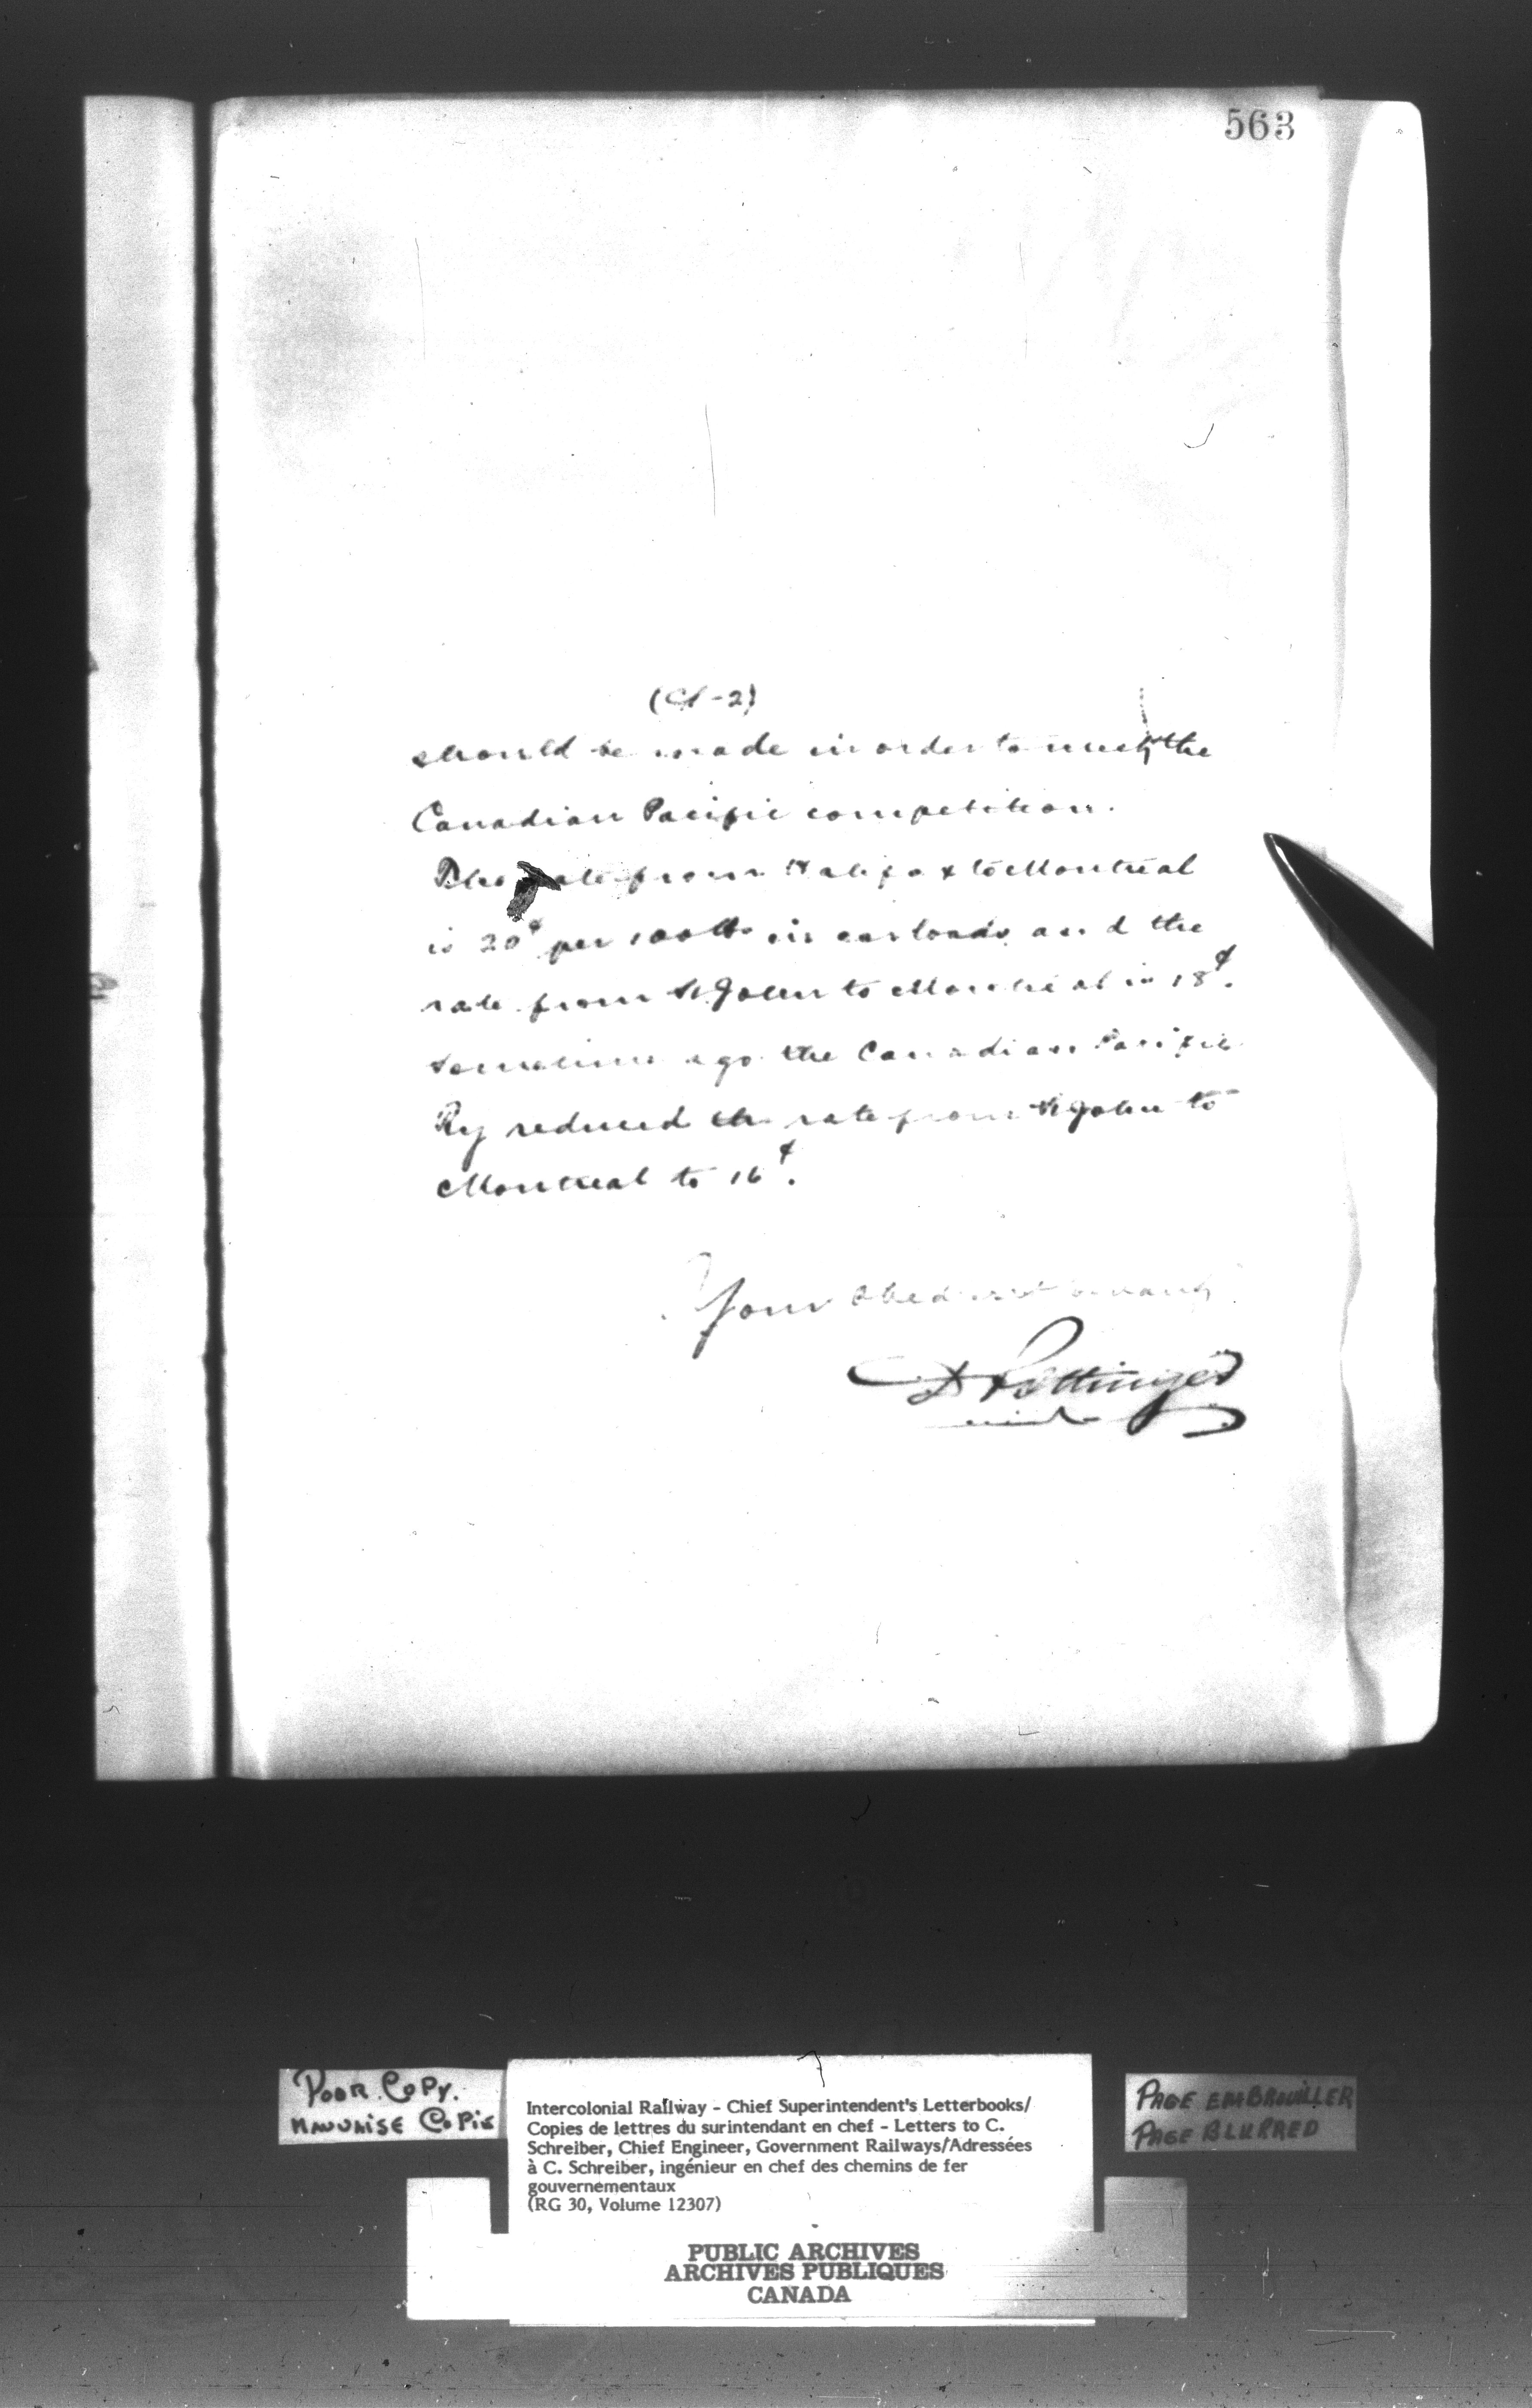 563
(Cl-2)
should be made in order to meet the
Canadian Pacific competition.
The rate from Halifax to Montreal
is 20¢ per 100 lbs in carloads and the
rate from St John to Montreal is 18¢.
Sometime ago the Canadian Pacific
Ry reduced the rate from St John to
Montreal to 16¢.
Your obedient servant
D Pottinger
POOR COPY.
MAUVAISE COPIE
Intercolonial Railway - Chief Superintendent's Letterbooks/
Copies de lettres du surintendant en chef - Letters to C.
Schreiber, Chief Engineer, Government Railways/Adressées
à C. Schreiber, ingénieur en chef des chemins de fer
gouvernementaux
(RG 30, Volume 12307)
PAGE EMBROUILLER
PAGE BLURRED
PUBLIC ARCHIVES
ARCHIVES PUBLIQUES
CANADA